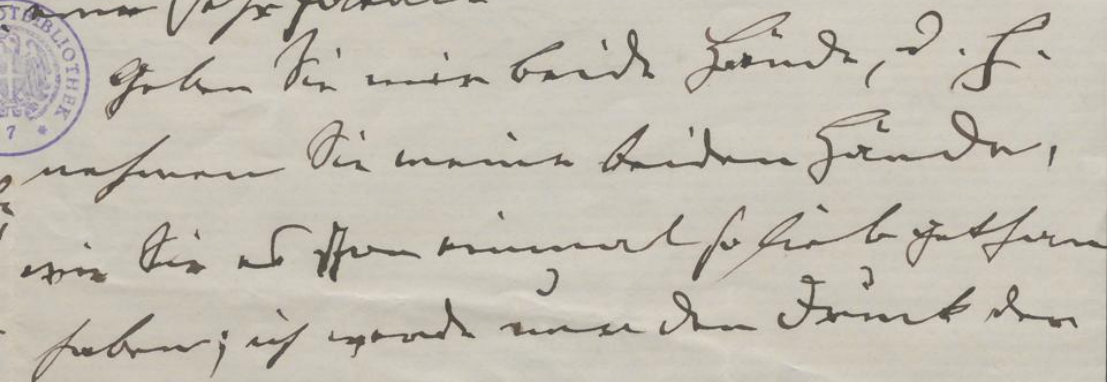 Geben Sie mir beide Hände, d. h.
nehmen Sie meine beiden Hände,
wie Sie es schon einmal so lieb gethan
haben; ich werde nur den Druck der
BIBLIOTHEK
7